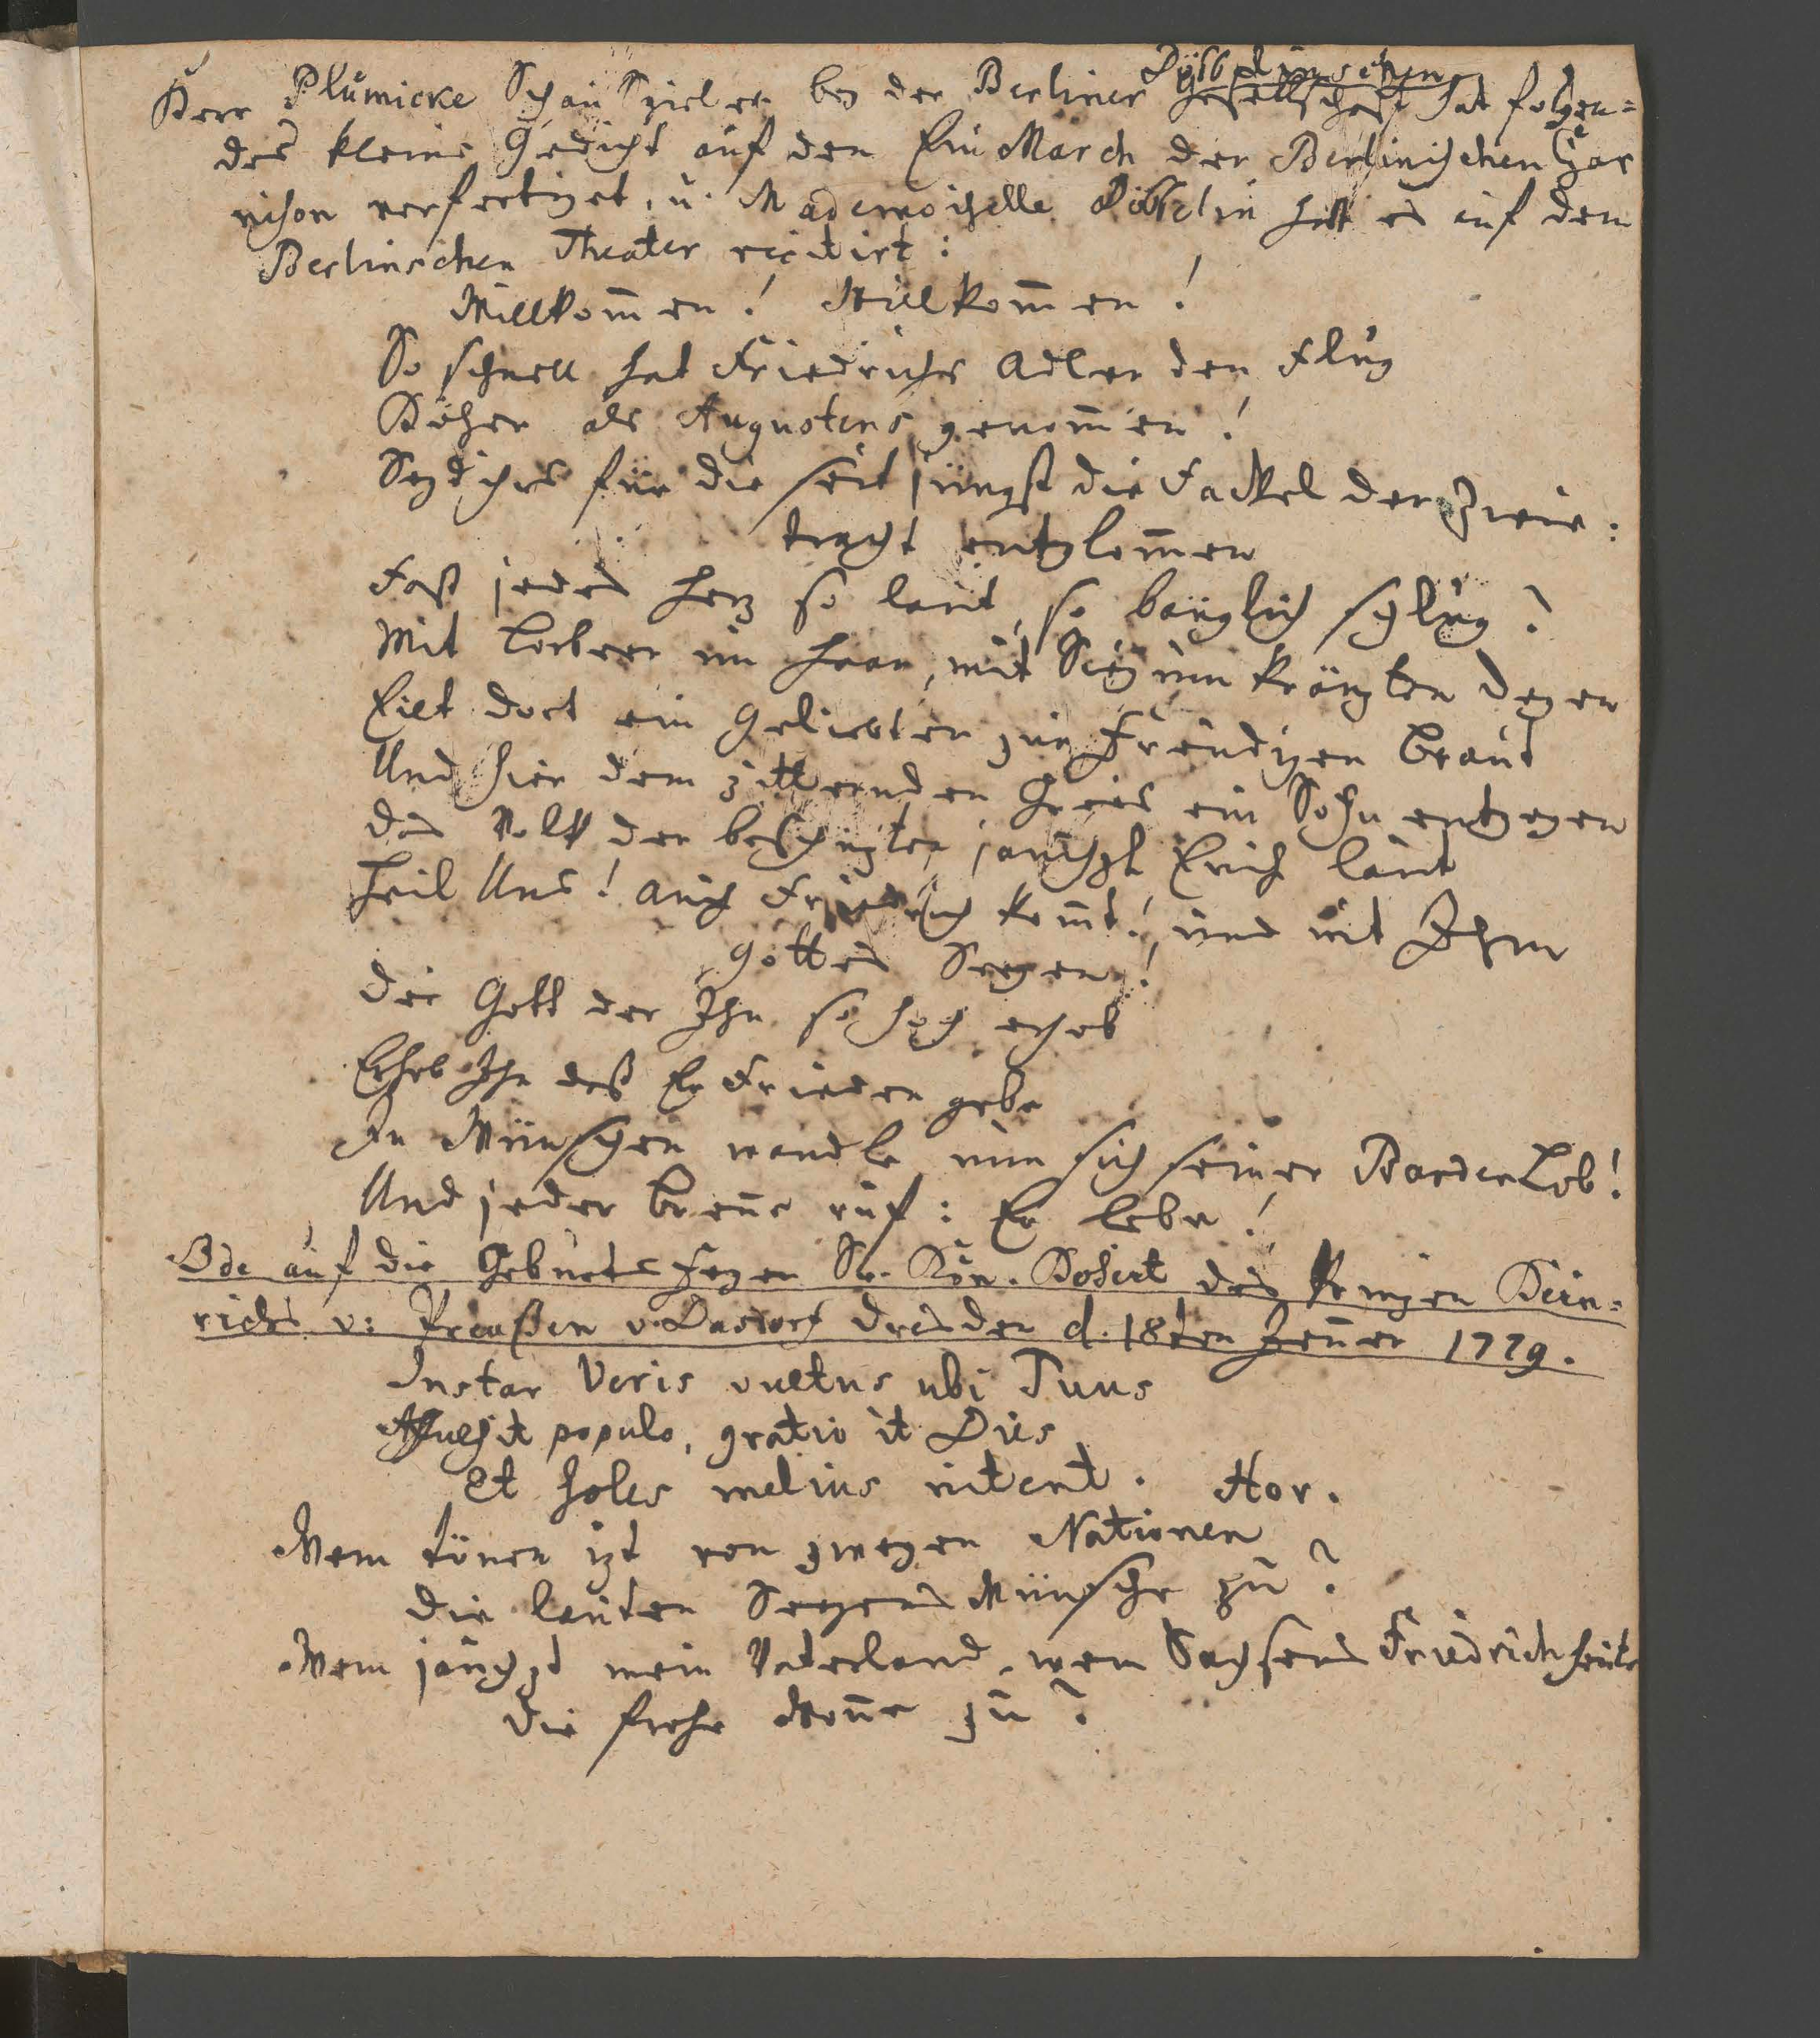 Döbbelinschen
Herr Plümicke Schau Spieler bey der Berliner Gesellschaft hat folgen=
des kleine Gedicht auf den Ein March der Berlinischen Gar
nison verfertiget, u. Mademoiselle Döbbelin hatt es auf dem
Berlinschen Theater recitirt:
Willkom̄en! Willkom̄en!
So schnell hat Friedrichs Adler den Flug
Höher als Augustens genom̄en!
Seyd ihrs für die seit jüngst die Fackel der Zwie:
tracht entglom̄en
Fast jedes Herz so laut, so bänglich schlug?
Mit Lorbeer im Haar, mit Sieg um kränzten Degen
Eilt dort ein Geliebter zur Freudigen Braut
Und hier dem zitternden Greis ein Sohn entgegen
das Volk der beschüzten jauchzt Euch laut
Heil Uns! auch Friedrich kom̄t! und mit Ihm
Gottes Seegen!
Der Gott der Ihn so hoch erhob
Erhob Ihn daß Er Frieden gebe
In Wünschen wandle nun sich seiner Barden Lob!
Und jeder Bren̄e ruf: Er lebe!
Ode auf die Geburts Feyer Sr. Kön. Hoheit des Prinzen Hein=
richs v: Preußen v. Dasdorf Dresden d. 18ten Jen̄er 1779.
Instar Veris vultus ubi Tuus
Affulsit populo, gratio it Dies
Et soles melius nitent. Hor.
Wem tönen izt von zweyen Nationen
Die lauten Seegens Wünsche zu?
Wem jauchzt mein Vaterland, wem Sachsens Friedrich heute
Die frohe Won̄e zu?